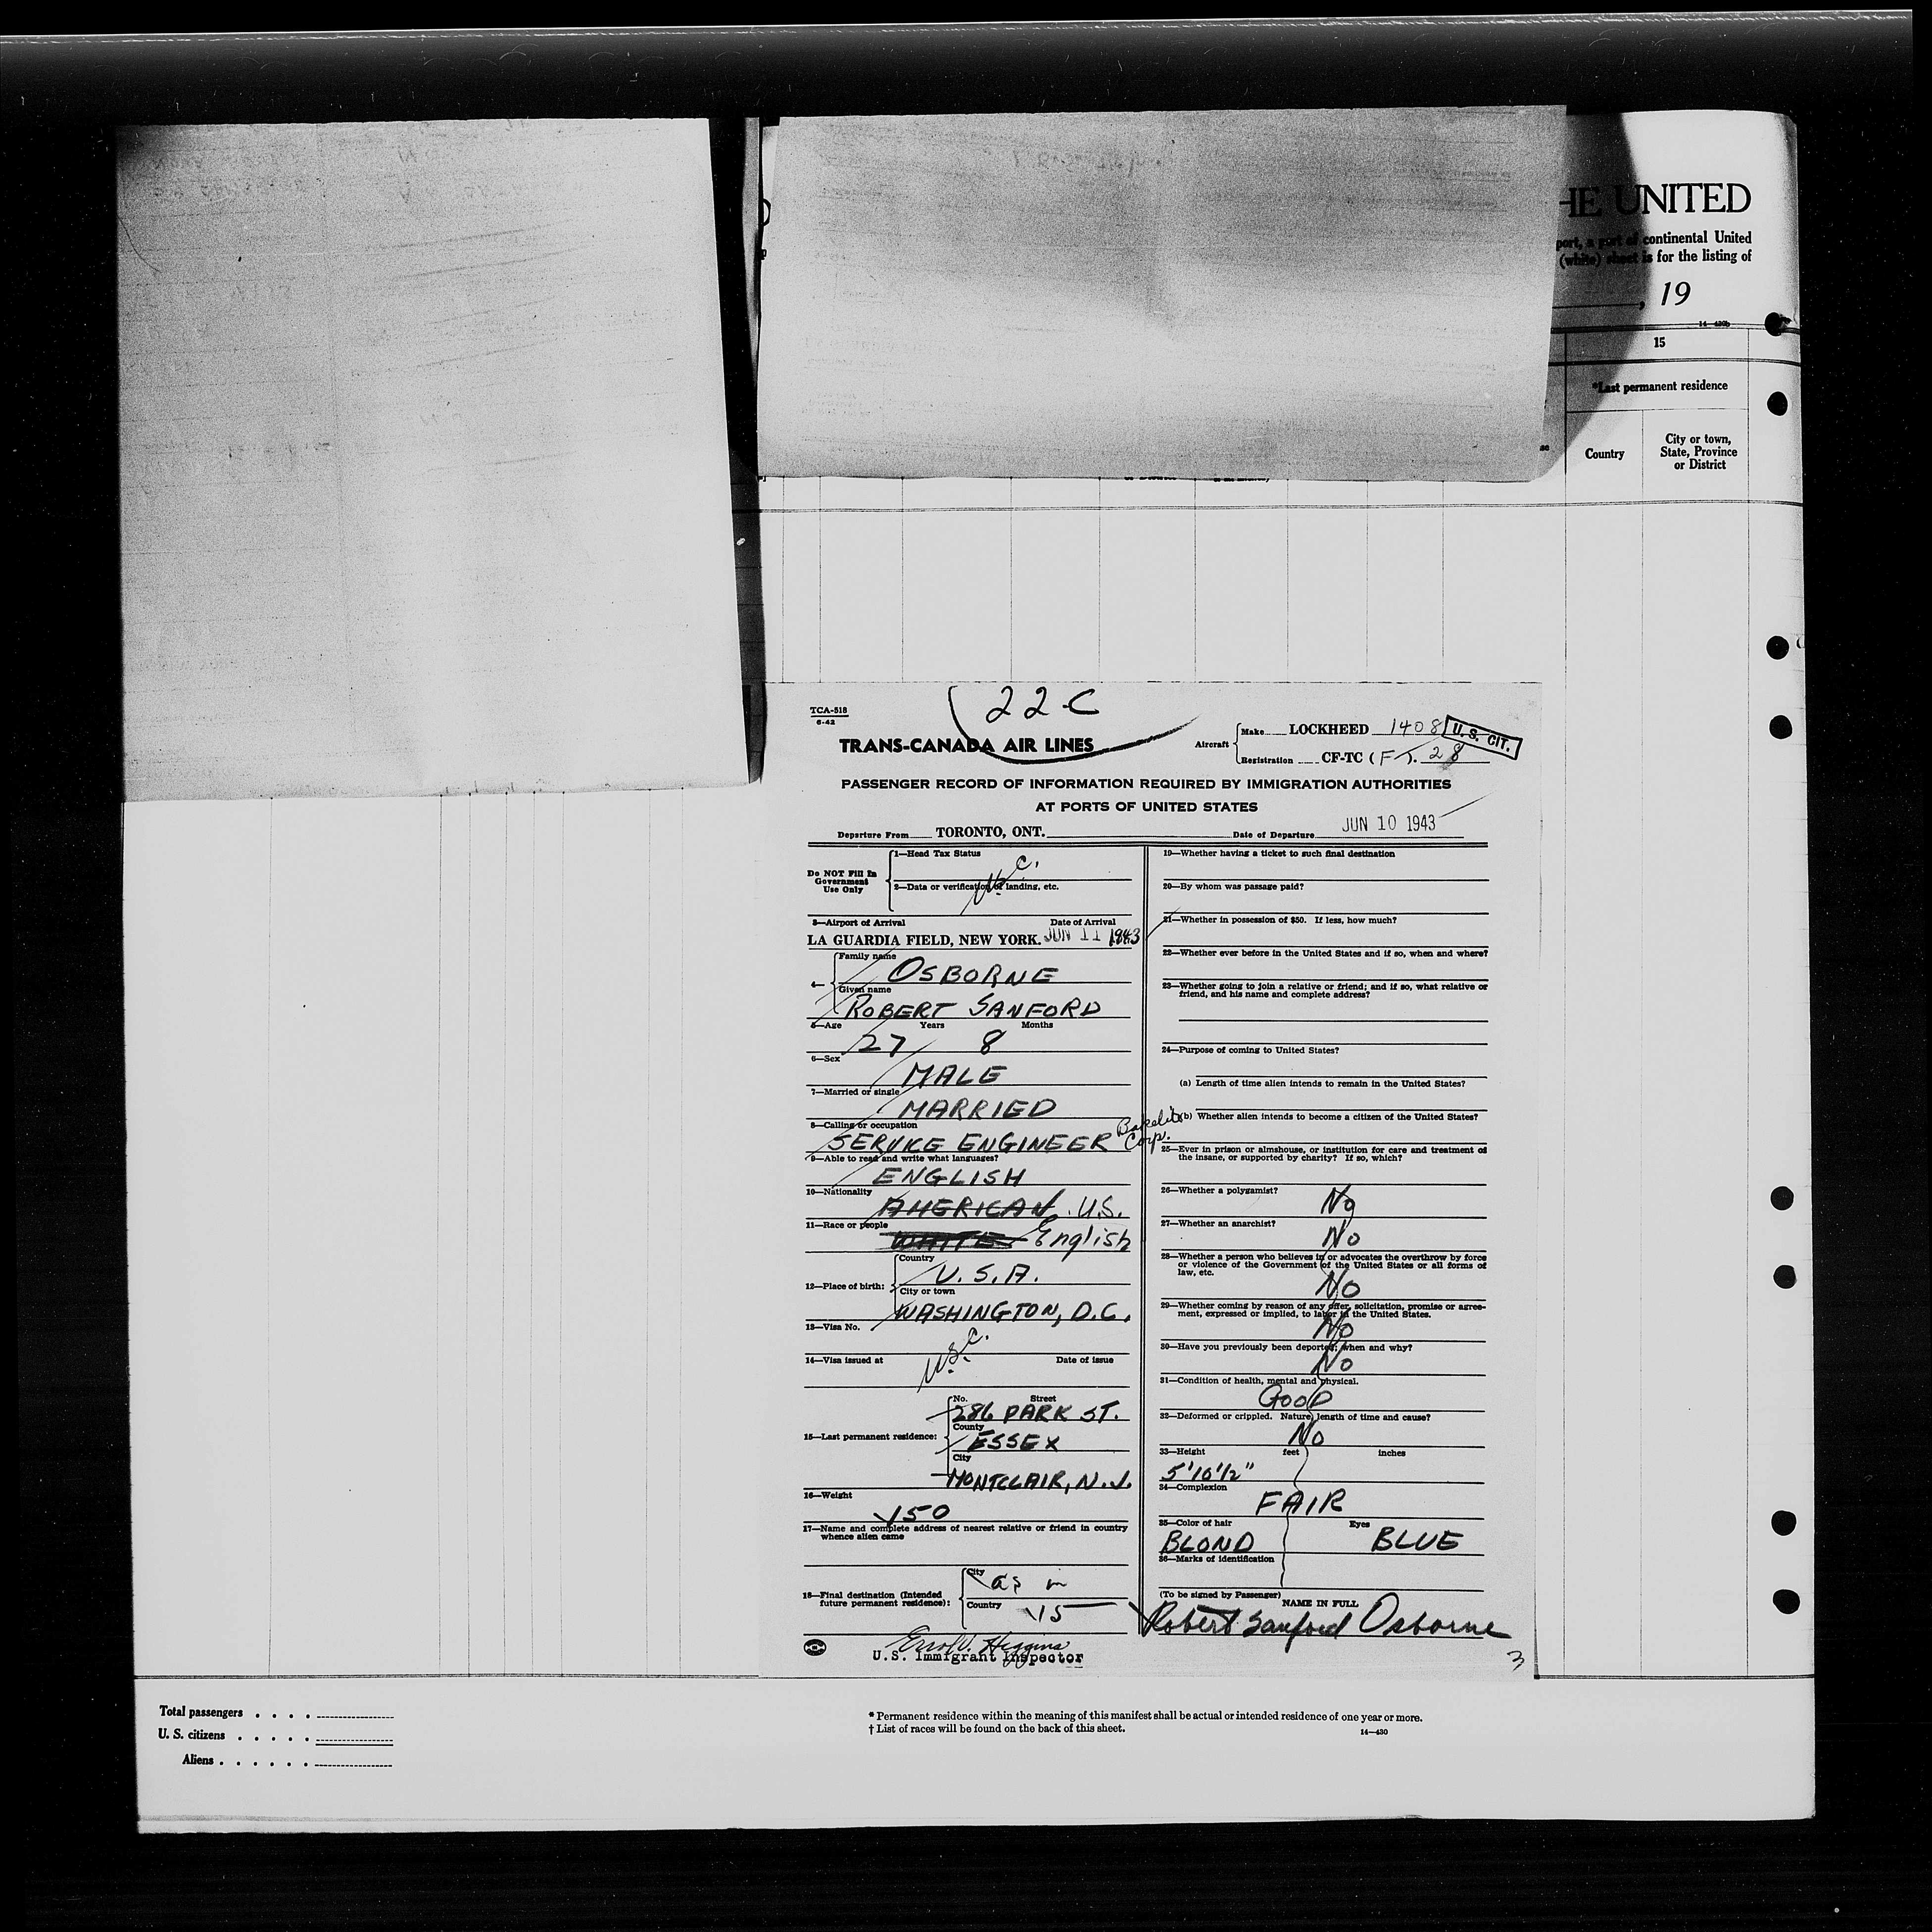 HE UNITED
port, a part of continental United
(white) sheet is for the listing of
, 19
14—430b
15
*Last permanent residence
Country
City or town,
State, Province
or District
22-C
TCA-518
6-42
TRANS-CANADA AIR LINES
Aircraft
Make LOCKHEED 1408
U. S. CIT.
Registration CF-TC
PASSENGER RECORD OF INFORMATION REQUIRED BY IMMIGRATION AUTHORITIES
AT PORTS OF UNITED STATES
Departure From TORONTO, ONT. Date of Departure JUN 10 1943
Do NOT Fill In
Government
Use Only
1—Head Tax Status
2—Data or verification of landing, etc.
3—Airport of Arrival Date of Arrival
LA GUARDIA FIELD, NEW YORK. JUN 11 1943
4—
Family name
OSBORNE
Given name
ROBERT SANFORD
5—Age Years Months
27 8
6—Sex
MALE
7—Married or single
MARRIED
8—Calling or occupation
SERVICE ENGINEER Bakelite Corp.
9—Able to read and write what languages?
ENGLISH
10—Nationality
AMERICAN U.S.
11—Race or people
WHITE English
12—Place of birth:
Country
U.S.A.
City or town
WASHINGTON, D.C.
13—Visa No.
U.S.C.
14—Visa issued at Date of issue
15—Last permanent residence:
No. Street
286 PARK ST.
County
ESSEX
City
MONTCLAIR, N.J.
16—Weight
150
17—Name and complete address of nearest relative or friend in country
whence alien came
18—Final destination (Intended
future permanent residence):
City as in
Country 15
Errol V. Higgins
U.S. Immigrant Inspector
19—Whether having a ticket to such final destination
20—By whom was passage paid?
21—Whether in possession of $50. If less, how much?
22—Whether ever before in the United States and if so, when and where?
23—Whether going to join a relative or friend; and if so, what relative or
friend, and his name and complete address?
24—Purpose of coming to United States?
(a) Length of time alien intends to remain in the United States?
(b) Whether alien intends to become a citizen of the United States?
25—Ever in prison or almshouse, or institution for care and treatment of
the insane, or supported by charity? If so, which?
26—Whether a polygamist?
No
27—Whether an anarchist?
No
28—Whether a person who believes in or advocates the overthrow by force
or violence of the Government of the United States or all forms of
law, etc.
No
29—Whether coming by reason of any offer, solicitation, promise or agree-
ment, expressed or implied, to labor in the United States.
No
30—Have you previously been deported; when and why?
No
31—Condition of health, mental and physical.
GOOD
32—Deformed or crippled. Nature, length of time and cause?
No
33—Height feet inches
5'10½"
34—Complexion
FAIR
35—Color of hair Eyes
BLOND BLUE
36—Marks of identification
(To be signed by Passenger)
NAME IN FULL
Robert Sanford Osborne
3
Total passengers . . . .
U. S. citizens . . . . .
Aliens . . . . . .
* Permanent residence within the meaning of this manifest shall be actual or intended residence of one year or more.
† List of races will be found on the back of this sheet.
14—430